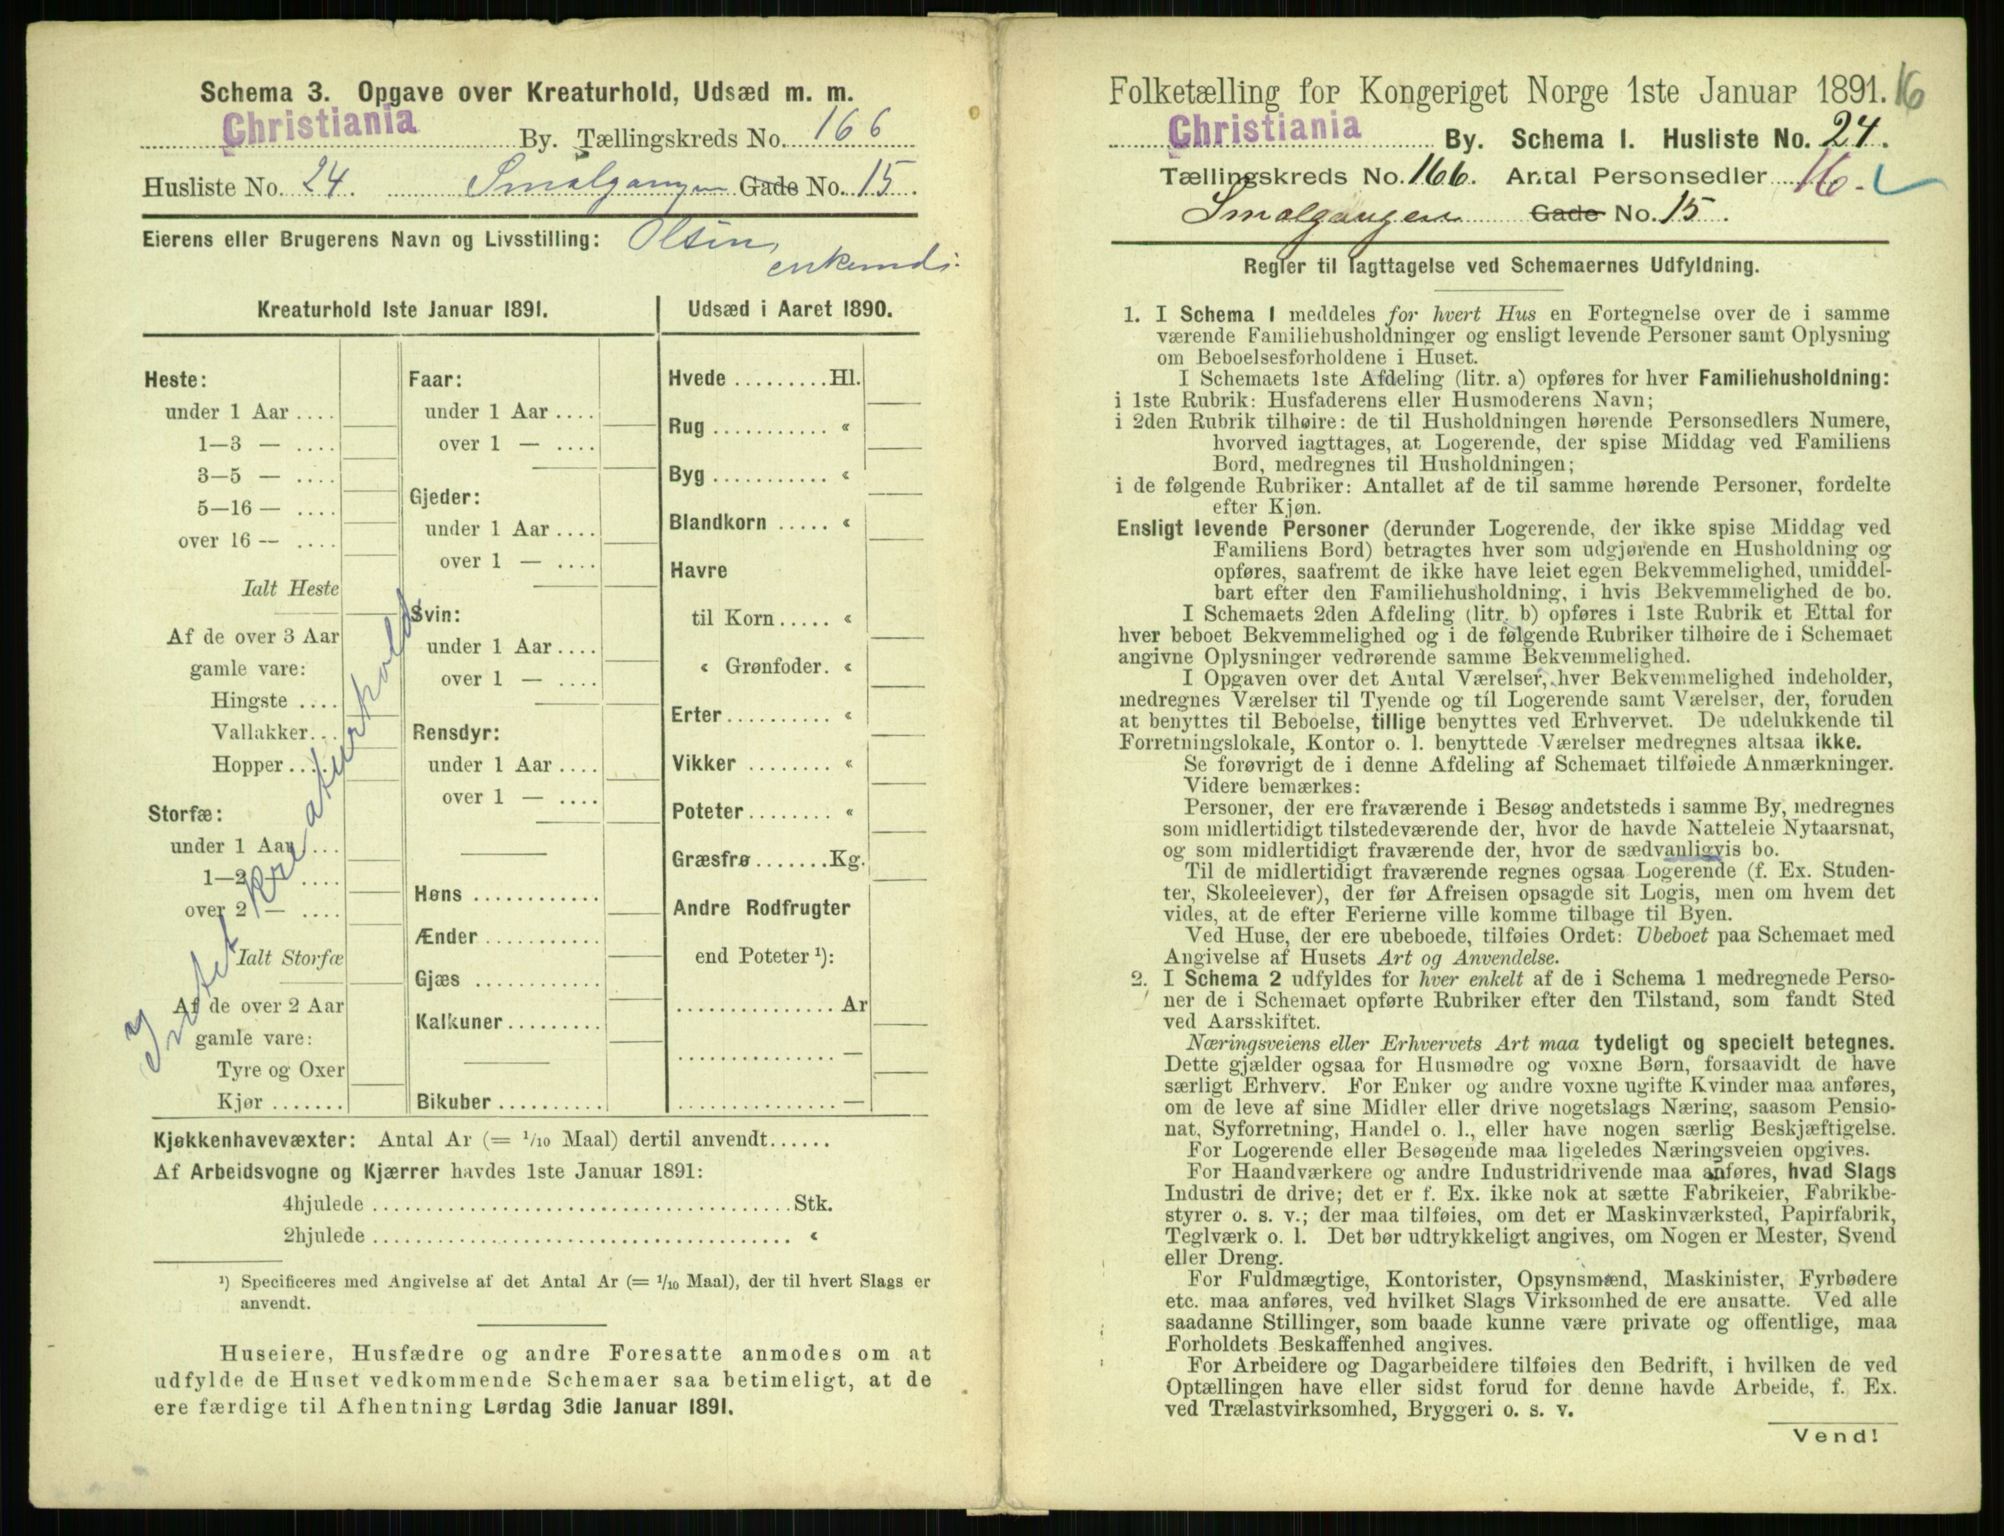 Schema 3. Opgave over Kreaturhold, Udsæd m. m.
Christiania By. Tællingskreds No. 166
Husliste No. 24. Smalgangen Gade No. 15.
Eierens eller Brugerens Navn og Livsstilling: Olsen,
Kreaturhold 1ste Januar 1891.
Heste:
under 1 Aar ....
1—3 — ....
3—5 — ....
5—16 — ....
over 16 — ....
Ialt Heste
Af de over 3 Aar
gamle vare:
Hingste ....
Vallakker...
Hopper ....
Storfæ:
under 1 Aar ...
1—2 — ....
over 2 — ....
Ialt Storfæ
Af de over 2 Aar
gamle vare:
Tyre og Oxer
Kjør .......
Intet Kreaturhold
Faar:
under 1 Aar ....
over 1 — ....
Gjeder:
under 1 Aar ....
over 1 — ....
Svin:
under 1 Aar ....
over 1 — ....
Rensdyr:
under 1 Aar ....
over 1 — ....
Høns ............
Ænder ...........
Gjæs ............
Kalkuner .........
Bikuber ..........
Udsæd i Aaret 1890.
Hvede ......... Hl.
Rug ........... «
Byg ........... «
Blandkorn ..... «
Havre
til Korn ..... «
« Grønfoder. «
Erter .......... «
Vikker ........ «
Poteter ........ «
Græsfrø ....... Kg.
Andre Rodfrugter
end Poteter ¹):
............... Ar
............... —
............... —
Kjøkkenhavevæxter: Antal Ar (= 1/10 Maal) dertil anvendt ......
Af Arbeidsvogne og Kjærrer havdes 1ste Januar 1891:
4hjulede ....................................... Stk.
2hjulede ....................................... «
¹) Specificeres med Angivelse af det Antal Ar (= 1/10 Maal), der til hvert Slags er
anvendt.
Huseiere, Husfædre og andre Foresatte anmodes om at
udfylde de Huset vedkommende Schemaer saa betimeligt, at de
ere færdige til Afhentning Lørdag 3die Januar 1891.
Folketælling for Kongeriget Norge 1ste Januar 1891. 16
Christiania By. Schema 1. Husliste No. 24.
Tællingskreds No. 166. Antal Personsedler 16.
Smalgangen Gade No. 15.
Regler til Iagttagelse ved Schemaernes Udfyldning.
1. I Schema 1 meddeles for hvert Hus en Fortegnelse over de i samme
værende Familiehusholdninger og ensligt levende Personer samt Oplysning
om Beboelsesforholdene i Huset.
I Schemaets 1ste Afdeling (litr. a) opføres for hver Familiehusholdning:
i 1ste Rubrik: Husfaderens eller Husmoderens Navn;
i 2den Rubrik tilhøire: de til Husholdningen hørende Personsedlers Numere,
hvorved iagttages, at Logerende, der spise Middag ved Familiens
Bord, medregnes til Husholdningen;
i de følgende Rubriker: Antallet af de til samme hørende Personer, fordelte
efter Kjøn.
Ensligt levende Personer (derunder Logerende, der ikke spise Middag ved
Familiens Bord) betragtes hver som udgjørende en Husholdning og
opføres, saafremt de ikke have leiet egen Bekvemmelighed, umiddel-
bart efter den Familiehusholdning, i hvis Bekvemmelighed de bo.
I Schemaets 2den Afdeling (litr. b) opføres i 1ste Rubrik et Ettal for
hver beboet Bekvemmelighed og i de følgende Rubriker tilhøire de i Schemaet
angivne Oplysninger vedrørende samme Bekvemmelighed.
I Opgaven over det Antal Værelser, hver Bekvemmelighed indeholder,
medregnes Værelser til Tyende og til Logerende samt Værelser, der, foruden
at benyttes til Beboelse, tillige benyttes ved Erhvervet. De udelukkende til
Forretningslokale, Kontor o. l. benyttede Værelser medregnes altsaa ikke.
Se forøvrigt de i denne Afdeling af Schemaet tilføiede Anmærkninger.
Videre bemærkes:
Personer, der ere fraværende i Besøg andetsteds i samme By, medregnes
som midlertidigt tilstedeværende der, hvor de havde Natteleie Nytaarsnat,
og som midlertidigt fraværende der, hvor de sædvanligvis bo.
Til de midlertidigt fraværende regnes ogsaa Logerende (f. Ex. Studen-
ter, Skoleelever), der før Afreisen opsagde sit Logis, men om hvem det
vides, at de efter Ferierne ville komme tilbage til Byen.
Ved Huse, der ere ubeboede, tilføies Ordet: Ubeboet paa Schemaet med
Angivelse af Husets Art og Anvendelse.
2. I Schema 2 udfyldes for hver enkelt af de i Schema 1 medregnede Perso-
ner de i Schemaet opførte Rubriker efter den Tilstand, som fandt Sted
ved Aarsskiftet.
Næringsveiens eller Erhvervets Art maa tydeligt og specielt betegnes.
Dette gjælder ogsaa for Husmødre og voxne Børn, forsaavidt de have
særligt Erhverv. For Enker og andre voxne ugifte Kvinder maa anføres,
om de leve af sine Midler eller drive nogetslags Næring, saasom Pensio-
nat, Syforretning, Handel o. l., eller have nogen særlig Beskjæftigelse.
For Logerende eller Besøgende maa ligeledes Næringsveien opgives.
For Haandværkere og andre Industridrivende maa anføres, hvad Slags
Industri de drive; det er f. Ex. ikke nok at sætte Fabrikeier, Fabrikbe-
styrer o. s. v.; der maa tilføies, om det er Maskinværksted, Papirfabrik,
Teglværk o. l. Det bør udtrykkeligt angives, om Nogen er Mester, Svend
eller Dreng.
For Fuldmægtige, Kontorister, Opsynsmænd, Maskinister, Fyrbødere
etc. maa anføres, ved hvilket Slags Virksomhed de ere ansatte. Ved alle
saadanne Stillinger, som baade kunne være private og offentlige, maa
Forholdets Beskaffenhed angives.
For Arbeidere og Dagarbeidere tilføies den Bedrift, i hvilken de ved
Optællingen have eller sidst forud for denne havde Arbeide, f. Ex.
ved Trælastvirksomhed, Bryggeri o. s. v.
Vend!